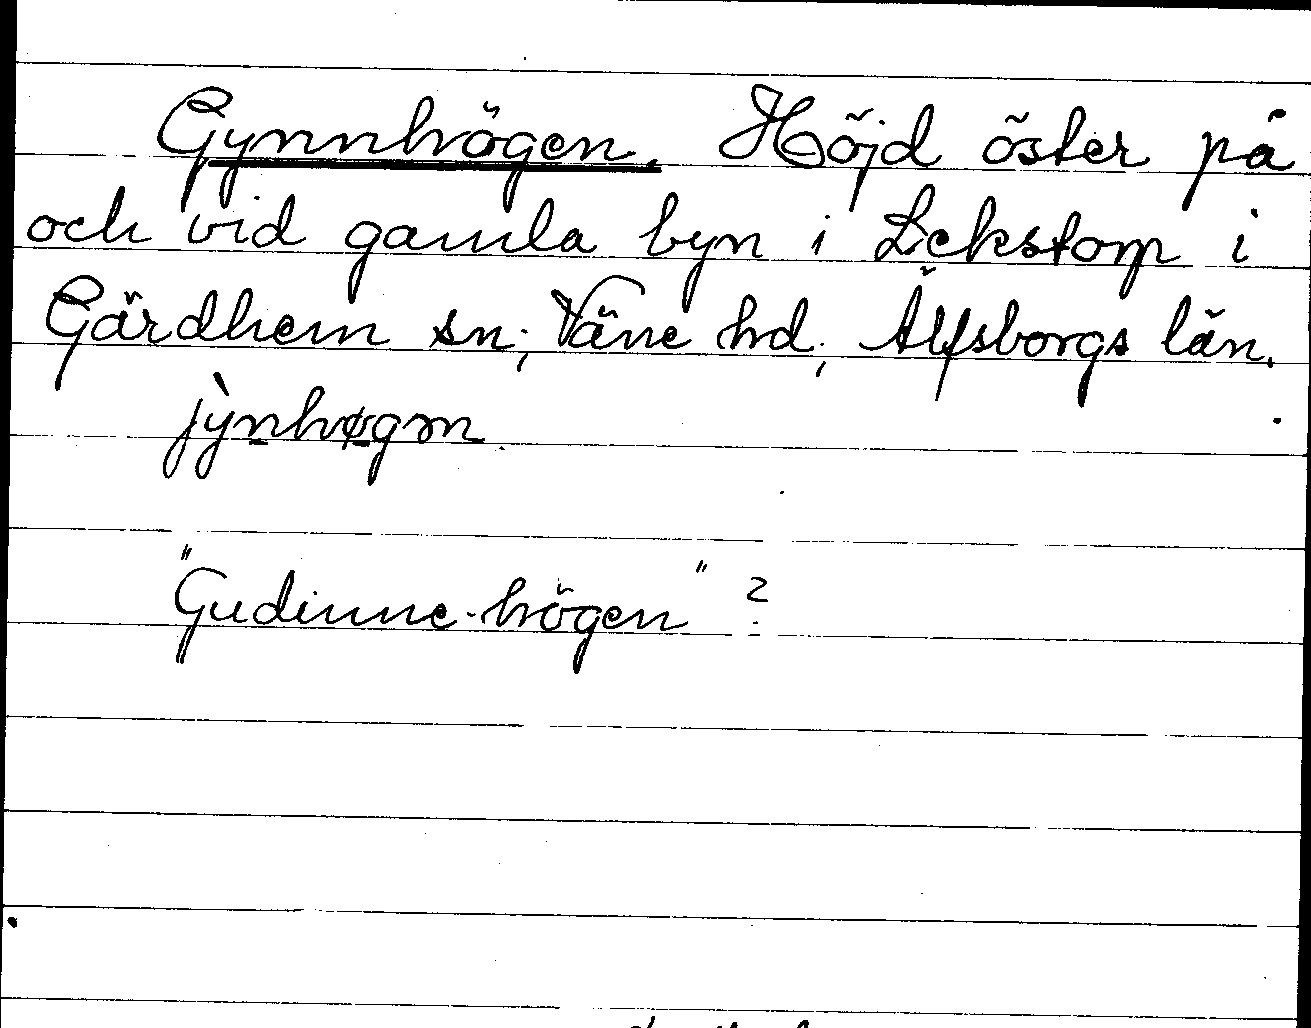 Gynnhögen. Höjd öster på
och vid gamla byn i Lekstorp i
Gärdhem sn; Väne hd; Älfsborgs län.
jy̌nhøgən
"Gudinne-högen" ?